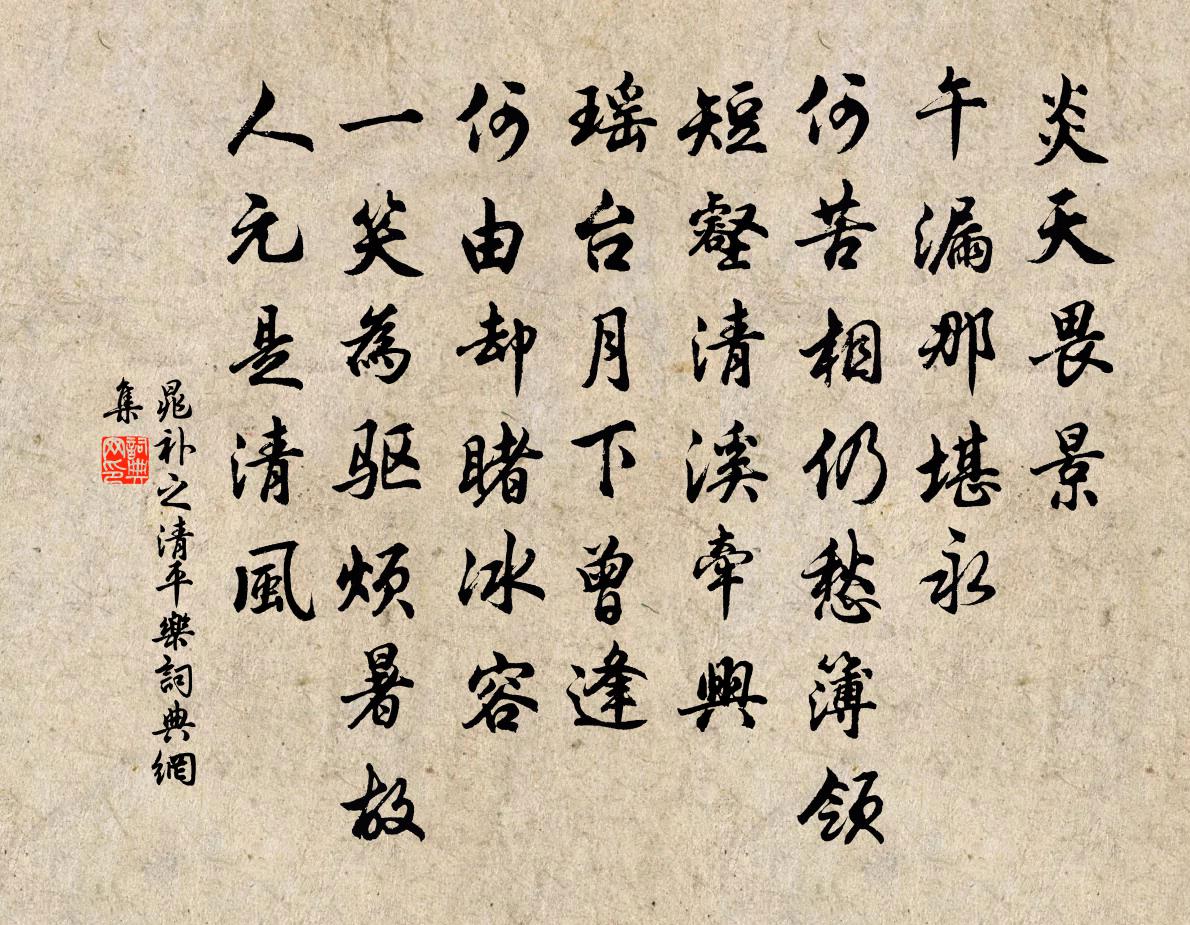 炎天畏景
午漏那堪永
何苦相仍愁簿领
短壑清溪牵興
瑶台月下曾逢
何由却睹冰容
一笑為驱烦暑故
人元是清風
晁补之清平樂詞典網
集
詞典网印